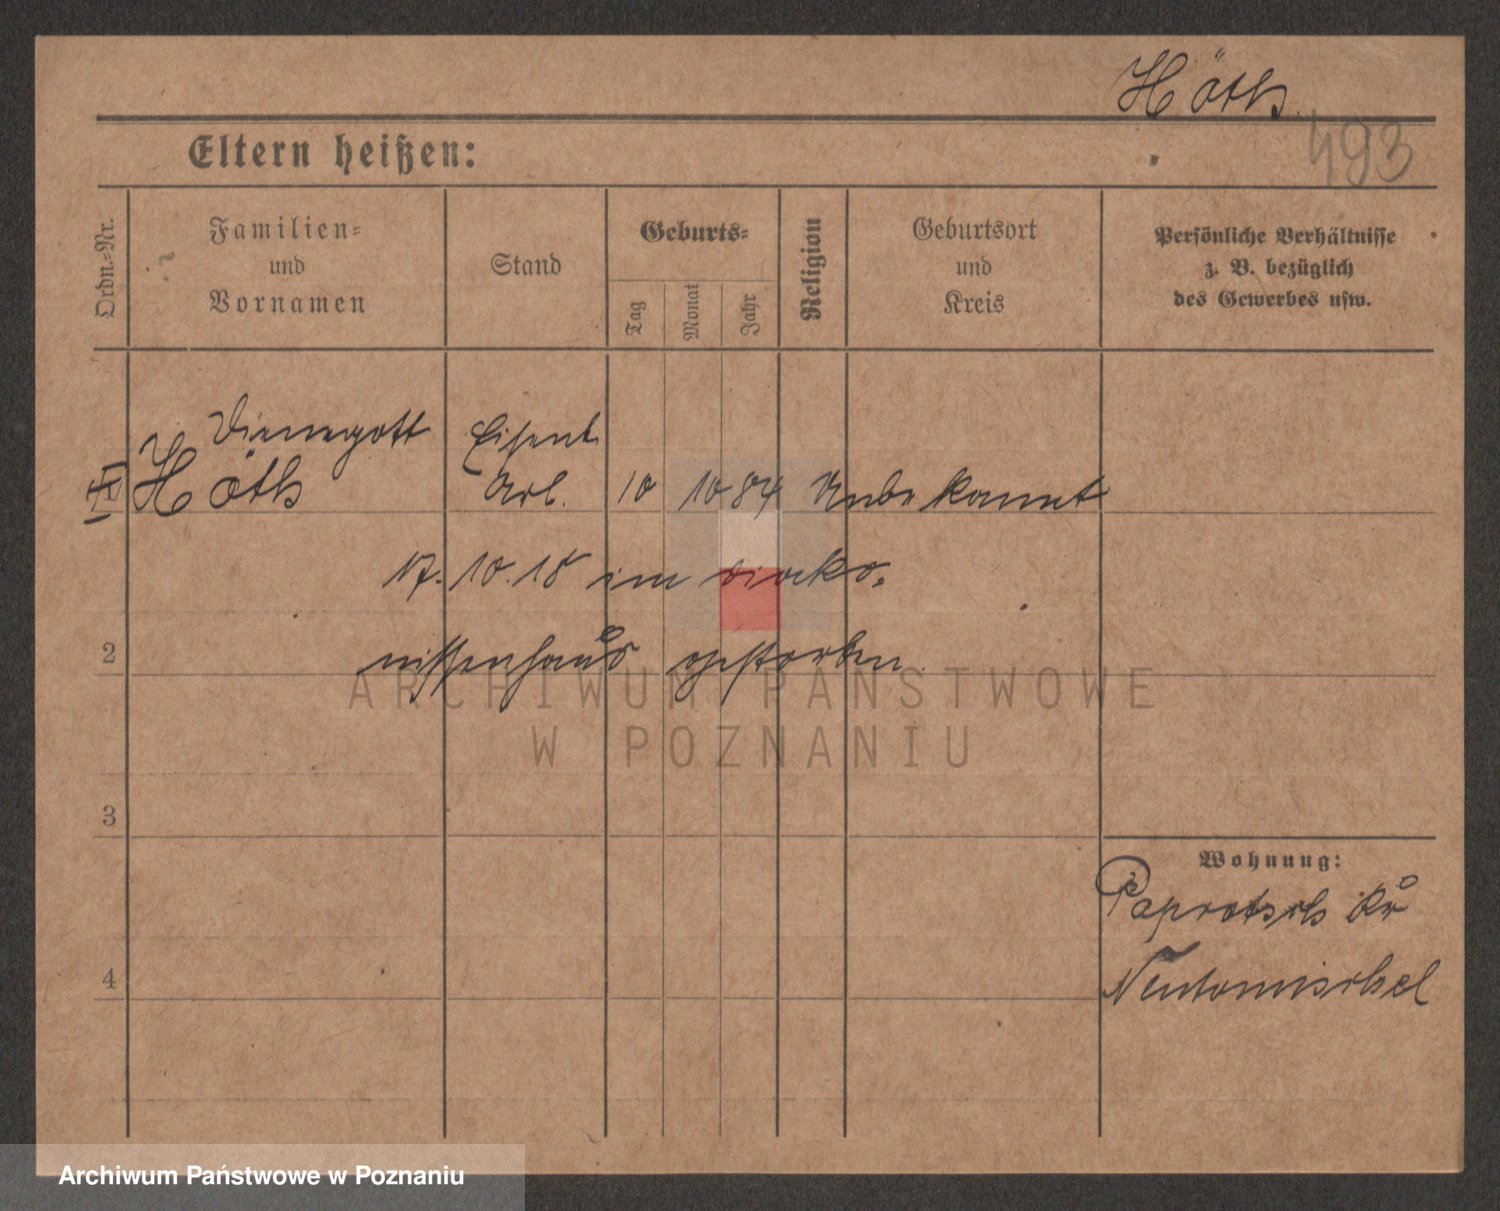 Höth
493
Eltern heißen:
Ordn.-Nr.
Familien-
und
Vornamen
Stand
Geburts-
Tag
Monat
Jahr
Religion
Geburtsort
und
Kreis
Persönliche Verhältnisse
z. B. bezüglich
des Gewerbes usw.
Eisenb.
Höth Arb. 10 10 84 Unbekannt
17. 10. 18 im Diako-
2
nissenhaus gestorben.
ARCHIWUM PAŃSTWOWE
W POZNANIU
3
Wohnung:
Paprotsch Kr
4
Neutomischel
Archiwum Państwowe w Poznaniu